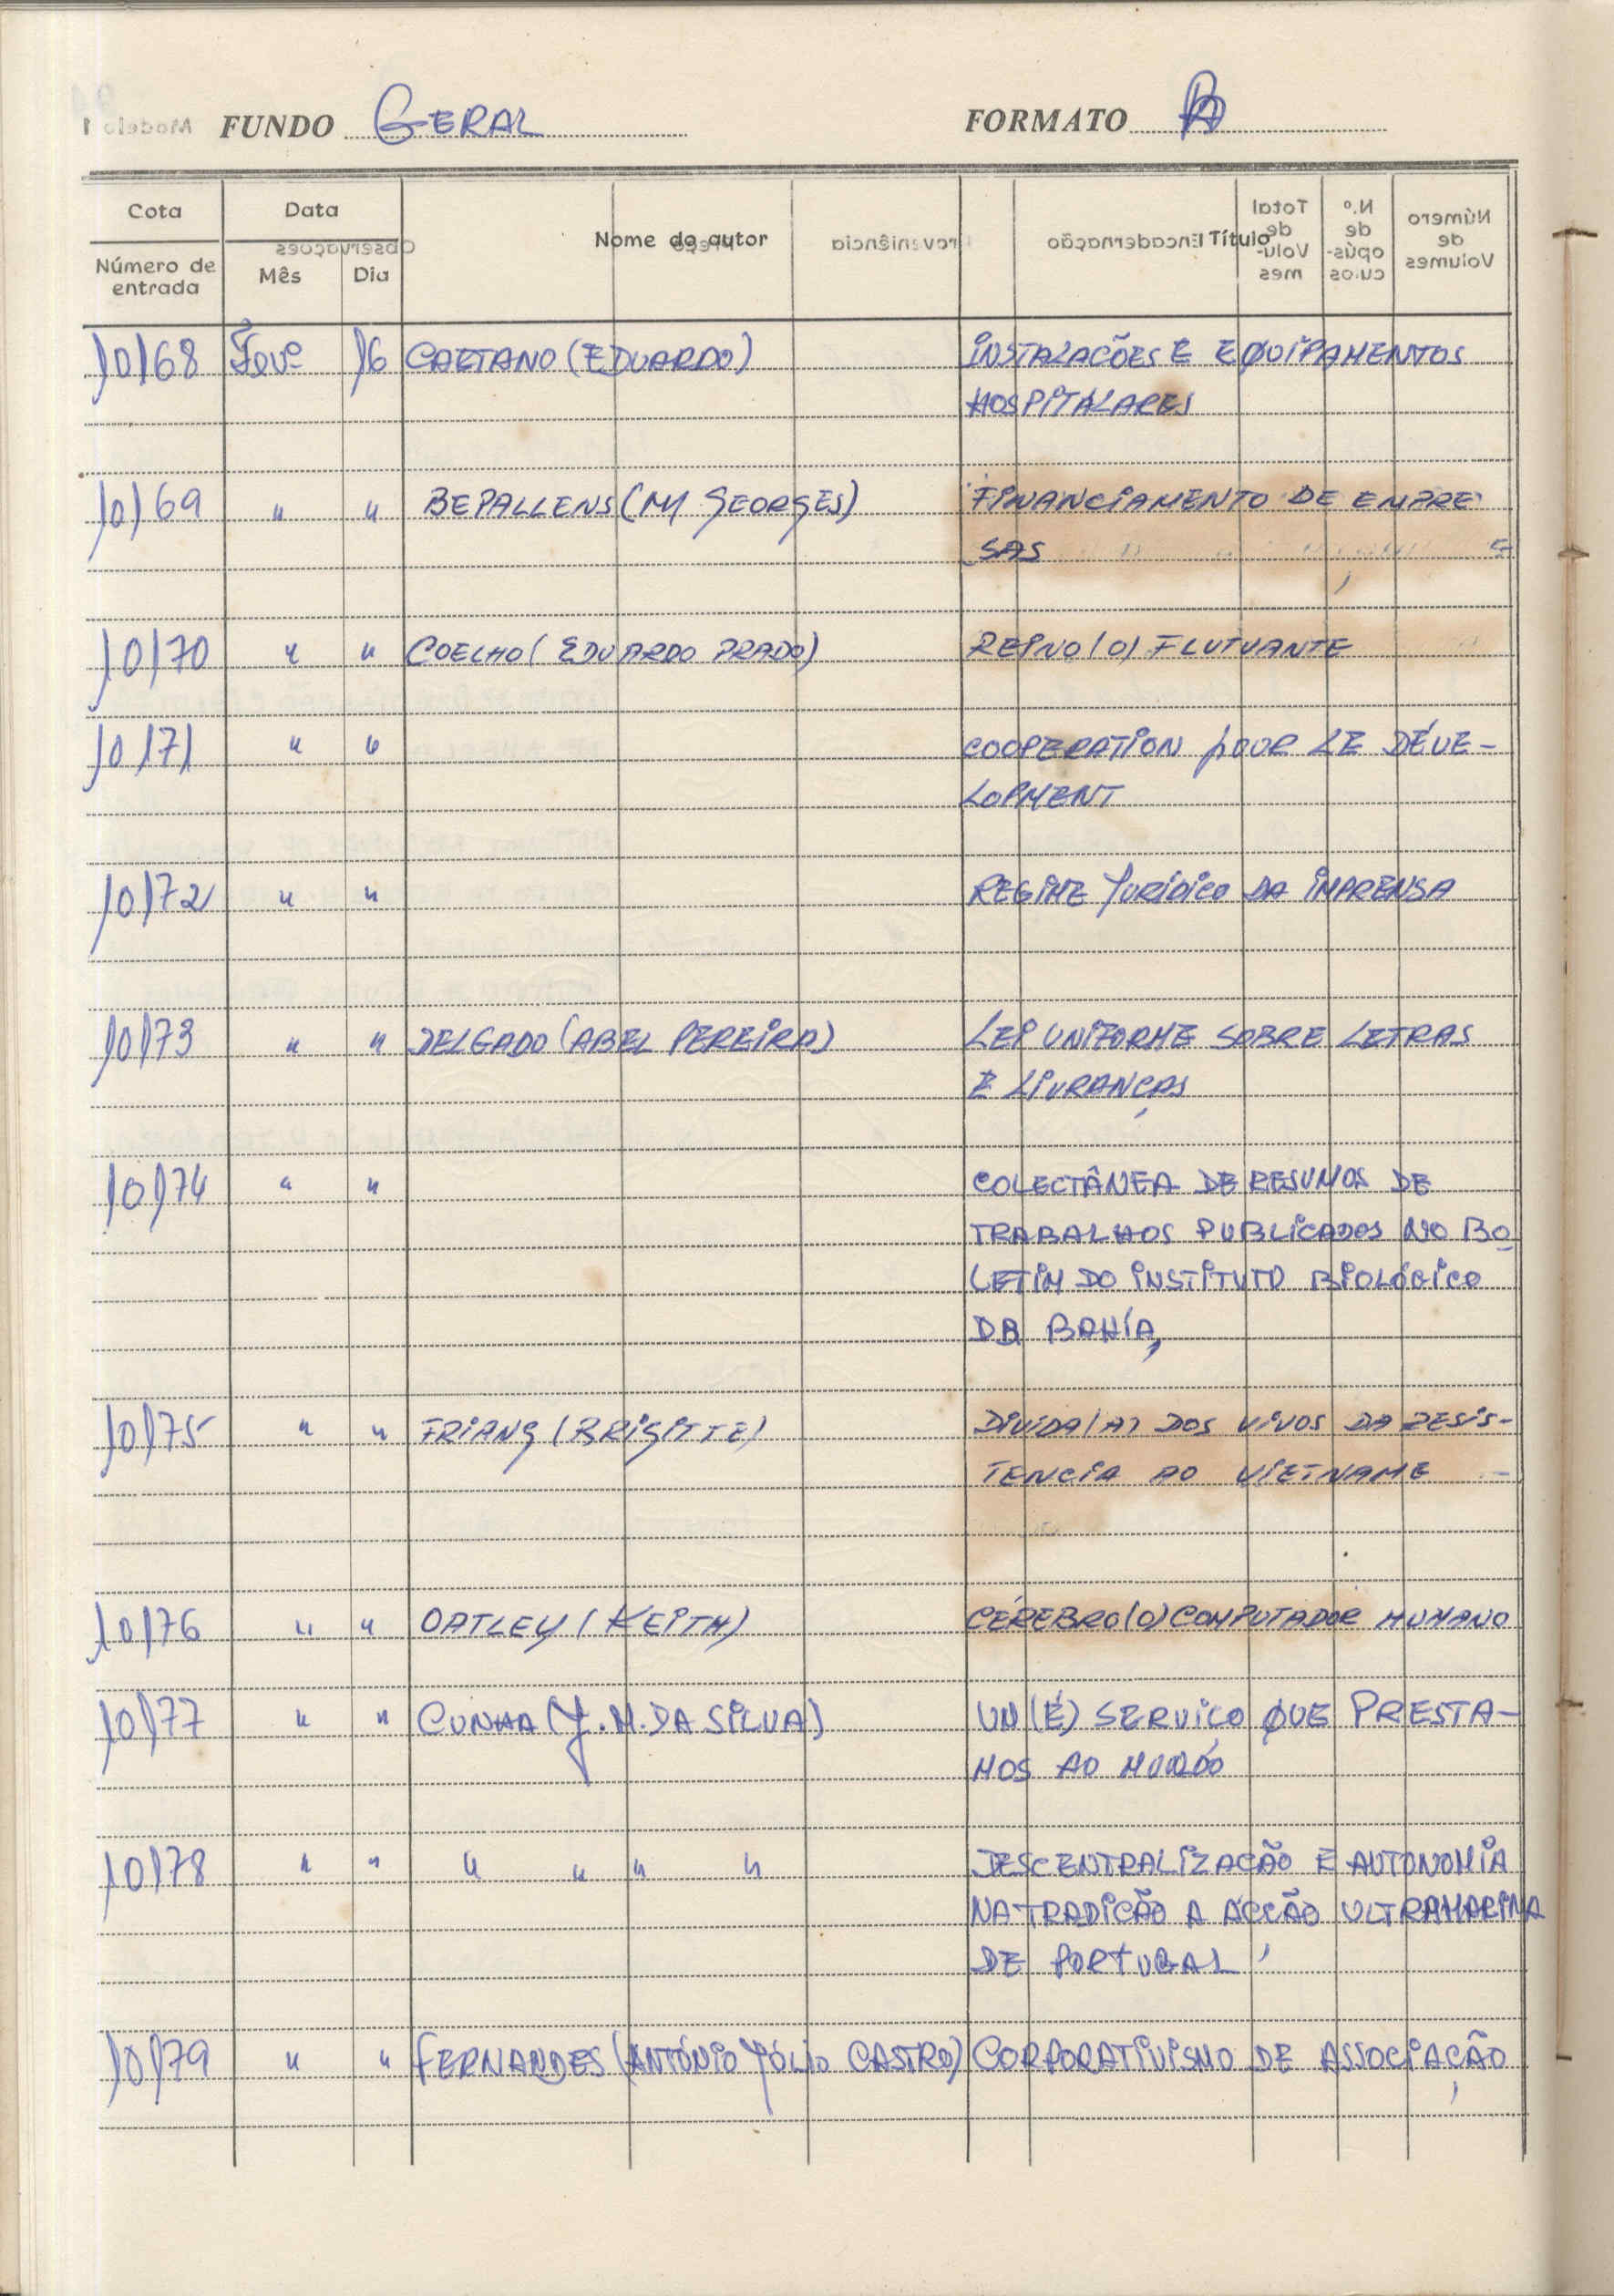 Modelo 1 FUNDO GERAL FORMATO
Cota Data Nome do autor Título
Número de entrada Mês Dia
Observações Preço Proveniência Encadernação Total de Volumes N.º de opúsculos Número de Volumes
10168 Fevº 16 CAETANO (EDUARDO) INSTALAÇÕES E EQUIPAMENTOS
HOSPITALARES
10169 " " BEPALLENS (M GEORGES) FINANCIAMENTO DE EMPRE
SAS
10170 " " COELHO (EDUARDO PRADO) REINO (O) FLUTUANTE
10171 " " COOPERATION POUR LE DÉVE-
LOPMENT
10172 " " REGIME JURÍDICO DA IMPRENSA
10173 " " DELGADO (ABEL PEREIRA) LEI UNIFORME SOBRE LETRAS
E LIVRANÇAS
10174 " " COLECTÂNEA DE RESUMOS DE
TRABALHOS PUBLICADOS NO BO
LETIM DO INSTITUTO BIOLÓGICO
DA BAHÍA,
10175 " " FRIANG (BRIGITTE) DIVIDA (A) DOS VIVOS DA RESIS-
TENCIA AO VIETNAME
10176 " " OATLEY (KEITH) CÉREBRO (O) COMPUTADOR HUMANO
10177 " " CUNHA (J. M. DA SILVA) UM (É) SERVIÇO QUE PRESTA-
MOS AO MUNDO
10178 " " " " " " DESCENTRALIZAÇÃO E AUTONOMIA
NA TRADIÇÃO A ACÇÃO ULTRAMARINA
DE PORTUGAL
10179 " " FERNANDES (ANTÓNIO JÚLIO CASTRO) CORPORATIVISMO DE ASSOCIAÇÃO